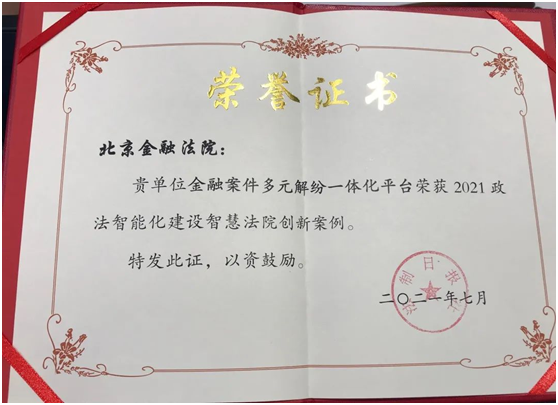 荣誉证书
北京金融法院：
贵单位金融案件多元解纷一体化平台荣获2021政
法智能化建设智慧法院创新案例。
特发此证，以资鼓励。
法制日报社
二〇二一年七月